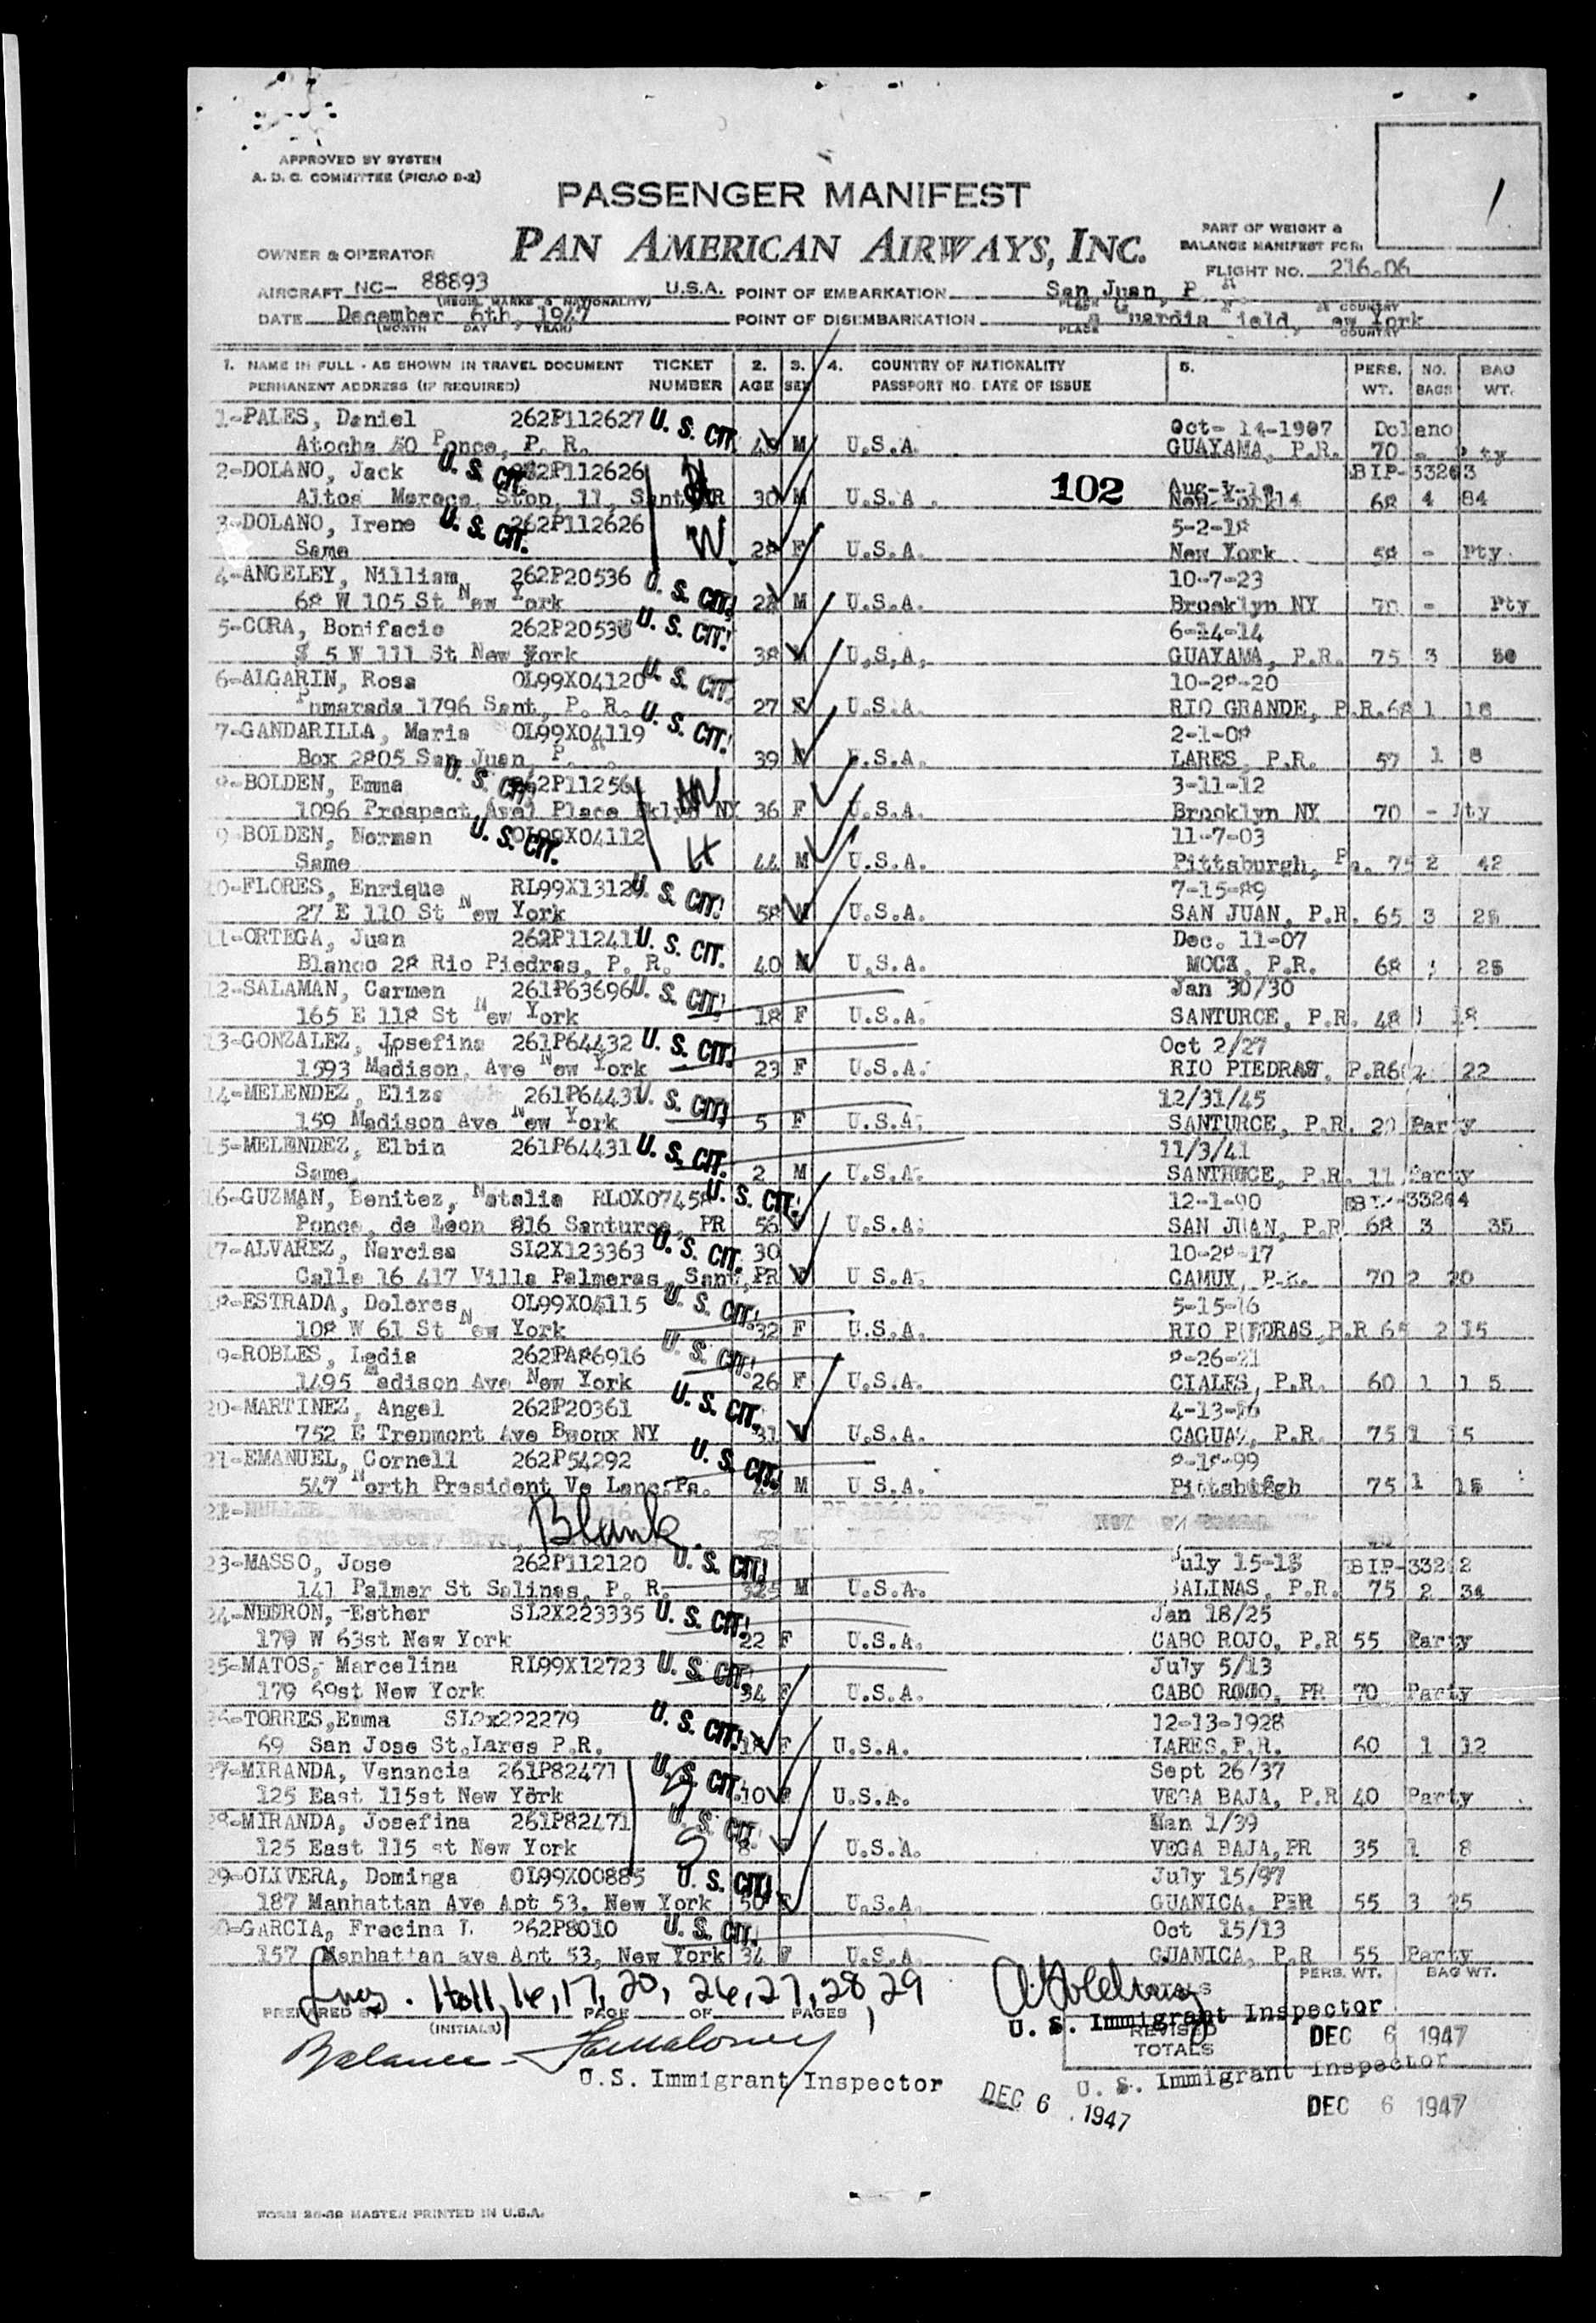 APPROVED BY SYSTEM
A. D. C. COMMITTEE (PICAO D-2)
1
PASSENGER MANIFEST
PAN AMERICAN AIRWAYS, INC.
PART OF WEIGHT &
BALANCE MANIFEST FOR:
OWNER & OPERATOR
FLIGHT NO. 216-06
AIRCRAFT NC- 88893 U.S.A. POINT OF EMBARKATION San Juan, P. R.
(REGIS. MARKS & NATIONALITY) PLACE COUNTRY
DATE December 6th, 1947 POINT OF DISEMBARKATION Guardia Field, New York
(MONTH DAY YEAR) PLACE COUNTRY
1. NAME IN FULL - AS SHOWN IN TRAVEL DOCUMENT TICKET 2. 3. 4. COUNTRY OF NATIONALITY 5. PERS. NO. BAG
PERMANENT ADDRESS (IF REQUIRED) NUMBER AGE SEX PASSPORT NO. DATE OF ISSUE WT. BAGS WT.
1-PALES, Daniel 262P112627 U. S. CIT. Oct- 14-1907 Dolano
Atocha 50 Ponce, P. R. M U.S.A. GUAYAMA, P.R. 70 - Pty
2-DOLANO, Jack U. S. CIT. 262P112626 H BIP-33263
Altos Maroca, Stop, 11, Sant PR 30 M U.S.A. 102 New York 68 4 84
3-DOLANO, Irene U. S. CIT. 262P112626 W 5-2-18
Same 28 F U.S.A. New York 58 - Pty
4-ANGELEY, Nilliam 262P20536 U. S. CIT! 10-7-23
68 W 105 St New York M U.S.A. Brooklyn NY 70 - Pty
5-CORA, Bonifacio 262P20536 U. S. CIT! 6-14-14
5 W 111 St New York 38 M U,S,A, GUAYAMA, P.R. 75 3 50
6-ALGARIN, Rosa OL99X04120 U. S. CIT! 10-28-20
Pumarada 1796 Sant, P. R. 27 F U.S.A. RIO GRANDE, P.R. 68 1 18
7-GANDARILLA, Maria OL99X04119 U. S. CIT! 2-1-08
Box 2805 San Juan, P. R. 39 F U.S.A. LARES, P.R. 57 1 8
8-BOLDEN, Emma U. S. CIT! W 3-11-12
1096 Prospect Ave Place Bklyn NY 36 F U.S.A. Brooklyn NY 70 - Pty
9-BOLDEN, Norman U. S. CIT. OL99X04112 H 11-7-03
Same 44 M U.S.A. Pittsburgh, Pa. 75 2 42
10-FLORES, Enrique RL99X13129 U. S. CIT! 7-15-89
27 E 110 St New York 58 M U.S.A. SAN JUAN, P.R. 65 3 25
11-ORTEGA, Juan 262P112411 U. S. CIT. Dec. 11-07
Blanco 28 Rio Piedras, P. R. 40 M U.S.A. MOCA, P.R. 68 1 25
12-SALAMAN, Carmen 261P63696 U. S. CIT! Jan 30/30
165 E 118 St New York 18 F U.S.A. SANTURCE, P.R. 48 1 18
13-GONZALEZ, Josefina 261P64432 U. S. CIT! Oct 2/27
1593 Madison, Ave New York 23 F U.S.A. RIO PIEDRAS, P.R 22
14-MELENDEZ, Eliza 261P64431 U. S. CIT! 12/31/45
159 Madison Ave New York 5 F U.S.A. SANTURCE, P.R. 20 Party
15-MELENDEZ, Elbin 261P64431 U. S. CIT. 11/3/41
Same 2 M U.S.A. SANTURCE, P.R. 11 Party
16-GUZMAN, Benitez, Natalia RLOX07458 U. S. CIT! 12-1-90 BIP-33264
Ponce, de Leon 816 Santurce, PR 56 U.S.A. SAN JUAN, P.R 68 3 35
17-ALVAREZ, Narcisa SL2X123363 U. S. CIT. 30 10-28-17
Calle 16 417 Villa Palmeras, Sant, PR F U.S.A. CAMUY, P.R. 70 2 20
18-ESTRADA, Dolores OL99X04115 U. S. CIT! 5-15-16
108 W 61 St New York 32 F U.S.A. RIO PIEDRAS, P.R 65 2 15
19-ROBLES, Ledia 262PA86916 U. S. CIT! 8-26-21
1495 Madison Ave New York 26 F U.S.A. CIALES, P.R. 60 1 15
20-MARTINEZ, Angel 262P20361 U. S. CIT. 4-13-16
752 E Trenmort Ave Bwonx NY 31 U.S.A. CAGUAS, P.R. 75 1 15
21-EMANUEL, Cornell 262P54292 U. S. CIT! 8-18-99
547 North President Ve Lanc. Pa. M U.S.A. Pittsburgh 75 1 15
22-
Blank
23-MASSO, Jose 262P112120 U. S. CIT! July 15-15 BIP-33262
141 Palmer St Salinas, P. R. M U.S.A. SALINAS, P.R. 75 2 34
24-NEGRON, Esther SL2X223335 U. S. CIT! Jan 18/25
179 W 63st New York 22 F U.S.A. CABO ROJO, P.R 55 Party
25-MATOS, Marcelina RL99X12723 U. S. CIT. July 5/13
179 69st New York 34 F U.S.A. CABO ROJO, PR 70 Party
26-TORRES,Emma SL2x222279 U. S. CIT! 12-13-1928
69 San Jose St.Lares P.R. F U.S.A. LARES,P.R. 60 1 12
27-MIRANDA, Venancia 261P82471 U. S. CIT. Sept 26/37
125 East 115st New York 10 F U.S.A. VEGA BAJA, P.R 40 Party
28-MIRANDA, Josefina 261P82471 U. S. CIT. S Man 1/39
125 East 115 st New York 8 U.S.A. VEGA BAJA,PR 35 1 8
29-OLIVERA, Dominga OL99X00885 U. S. CIT! July 15/97
187 Manhattan Ave Apt 53, New York 50 F U.S.A. GUANICA, PR 55 3 25
30-GARCIA, Frecina L 262P8010 U. S. CIT. Oct 15/13
157 Manhattan ave Apt 53, New York 34 F U.S.A. GUANICA, P.R 55 Party
1to11, 16, 17, 20, 26, 27, 28, 29
PERS. WT. BAG WT.
PREPARED BY PAGE OF PAGES TOTALS
(INITIALS) U. S. Immigrant Inspector
REVISED TOTALS DEC 6 1947
Balance -
U.S. Immigrant Inspector U. S. Immigrant Inspector
DEC 6 1947 DEC 6 1947
FORM 26-68 MASTER PRINTED IN U.S.A.